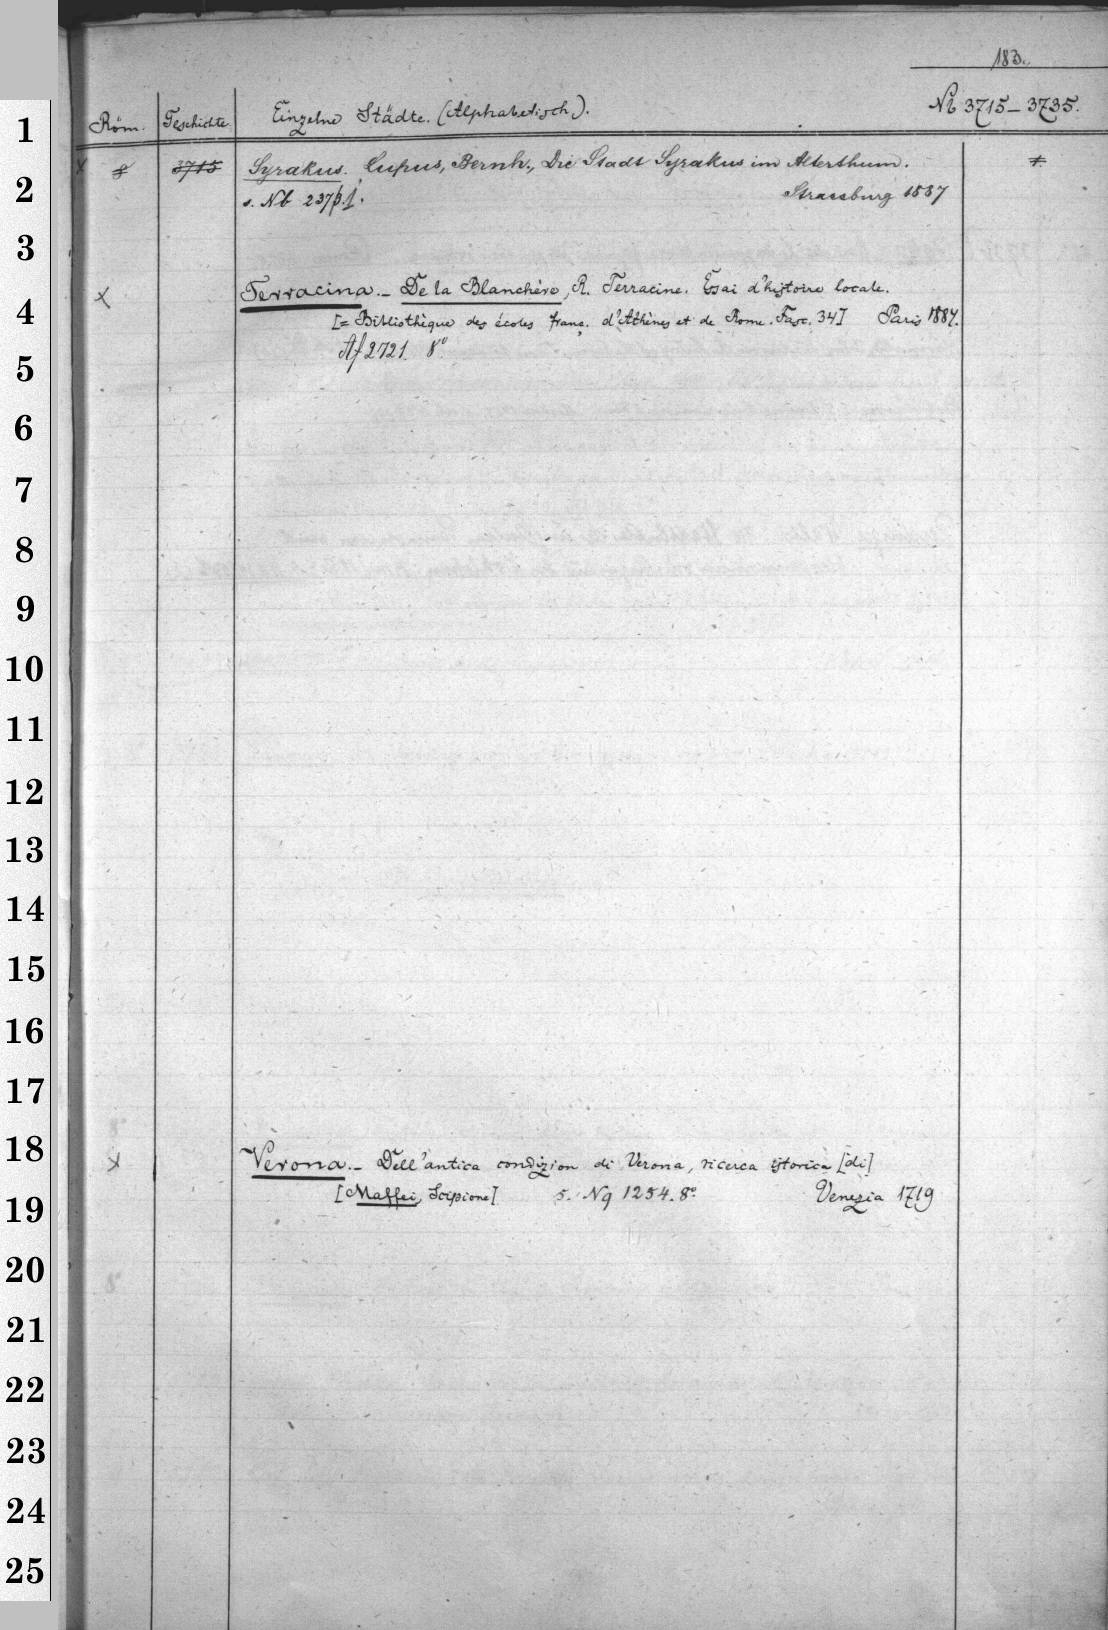 183.
Röm. Geschichte Einzelne Städte. (Alphabetisch). Nb 3715-3735.
x 8 3715 Syrakus. Lupus, Bernh., Die Stadt Syrakus im Alterthum. 1.
s. Nb Strassburg 1887
x Terracina. - De la Blanchère, R. Terracine. Essai d'histoire locale.
[= Bibliothèque des écoles franç. d'Athènes et de Rome. Fasc. 34] Paris 1884.
Af 2721 8°
x Verona. - Dell'antica condizion di Verona, ricerca istorica [di]
[Maffei, Scipione] s. Nq 1254. 8° Venezia 1719
1
2
3
4
5
6
7
8
9
10
11
12
13
14
15
16
17
18
19
20
21
22
23
24
25